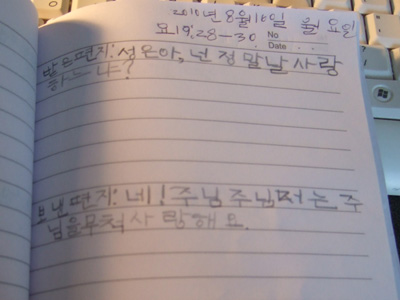 2010년 8월 16일 월요일
요19:28-30 No
Date . .
받은편지: 성은아, 넌 정말날 사랑
하느냐?
보낸편지: 네! 주님 주님 저는 주
님을무척 사랑해요.